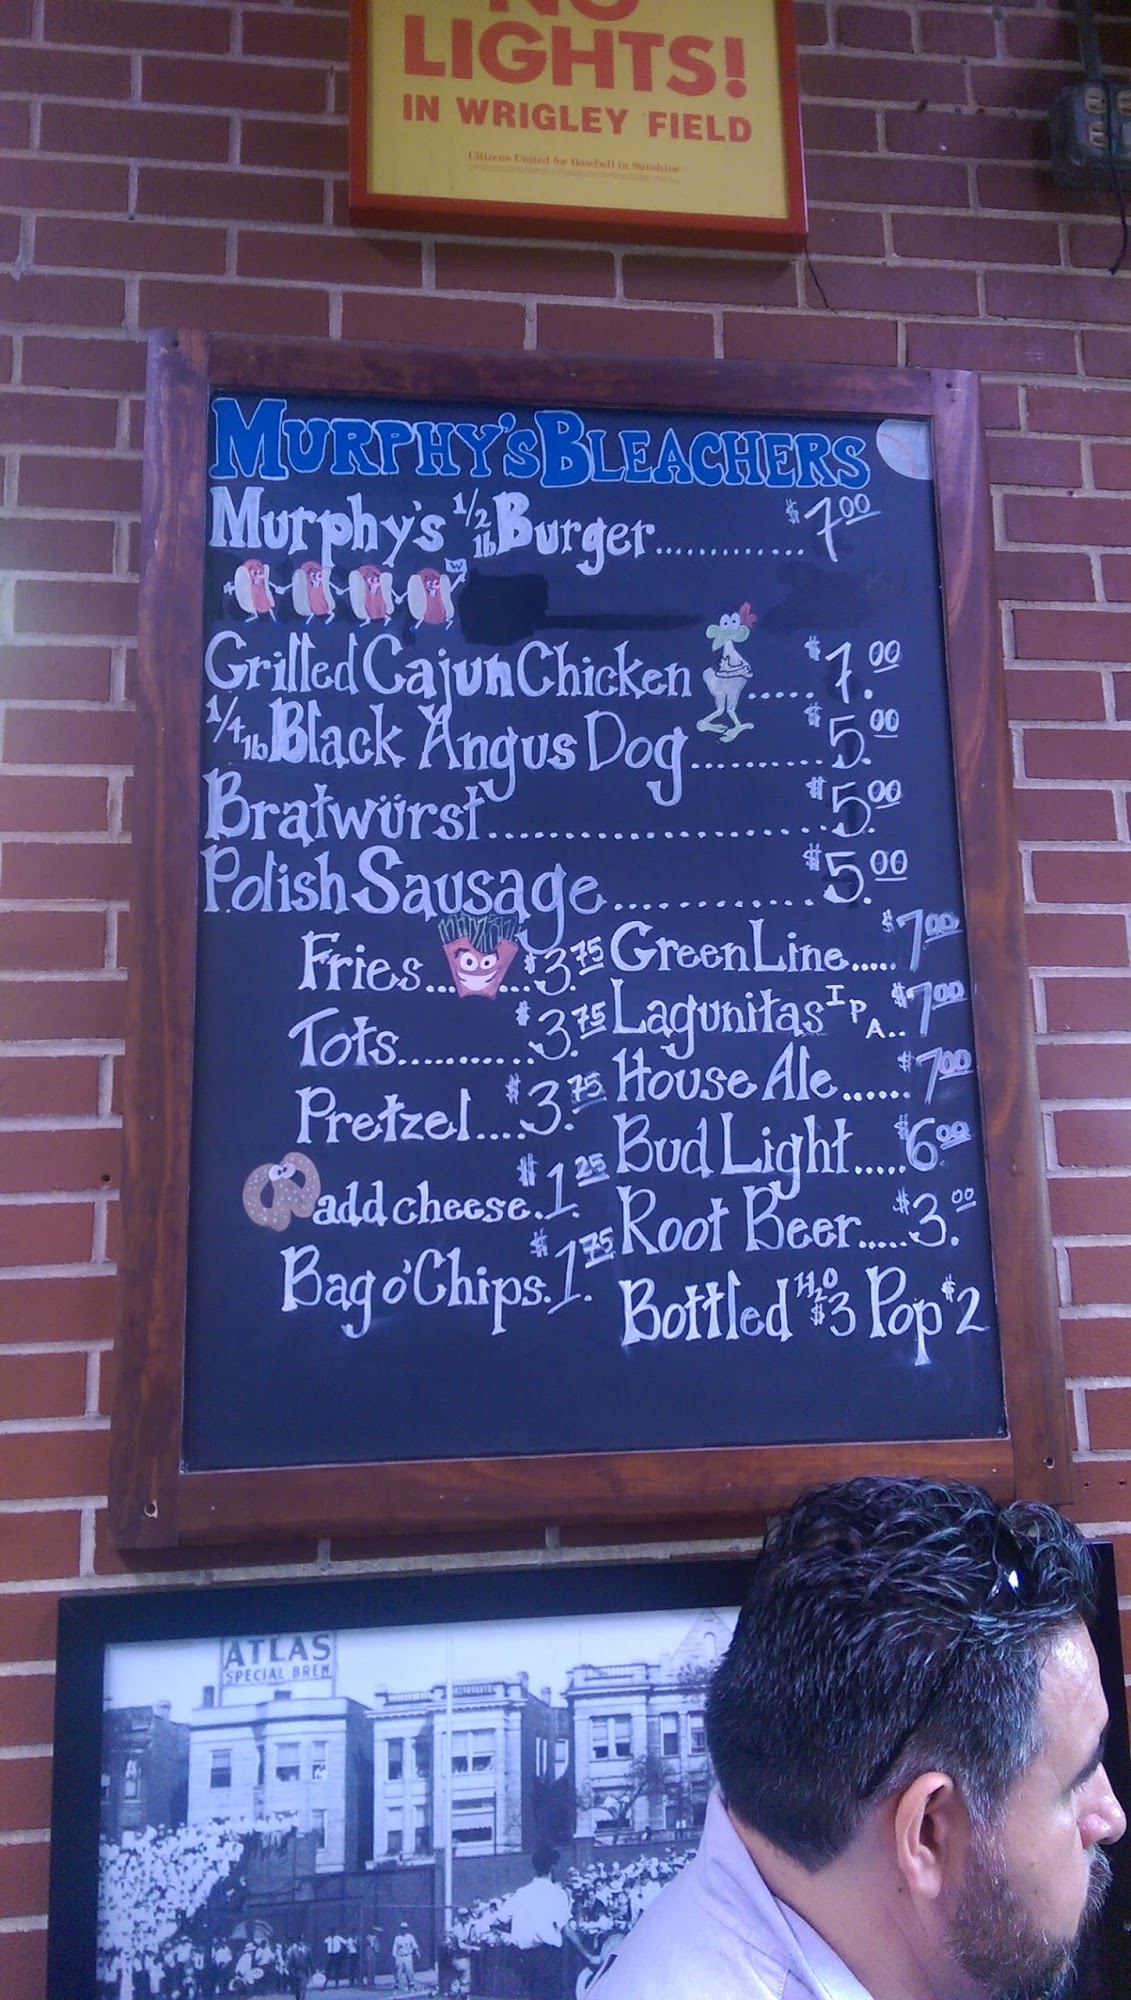 NO
LIGHTS!
IN WRIGLEY FIELD
Citizens United for Baseball in Sunshine
MURPHY'S BLEACHERS
Murphy's 1/2 lb Burger............. $7.00
W
Grilled Cajun Chicken ..... $7.00
1/4 lb Black Angus Dog.......... $5.00
Bratwürst....................... $5.00
Polish Sausage............. $5.00
Fries...... $3.75
Tots.......... $3.75
Pretzel.... $3.75
add cheese. $1.25
Bag o' Chips. $1.75
Green Line..... $7.00
Lagunitas IPA.. $7.00
House Ale...... $7.00
Bud Light..... $6.00
Root Beer..... $3.00
Bottled H2O $3 Pop $2
ATLAS
SPECIAL BREW